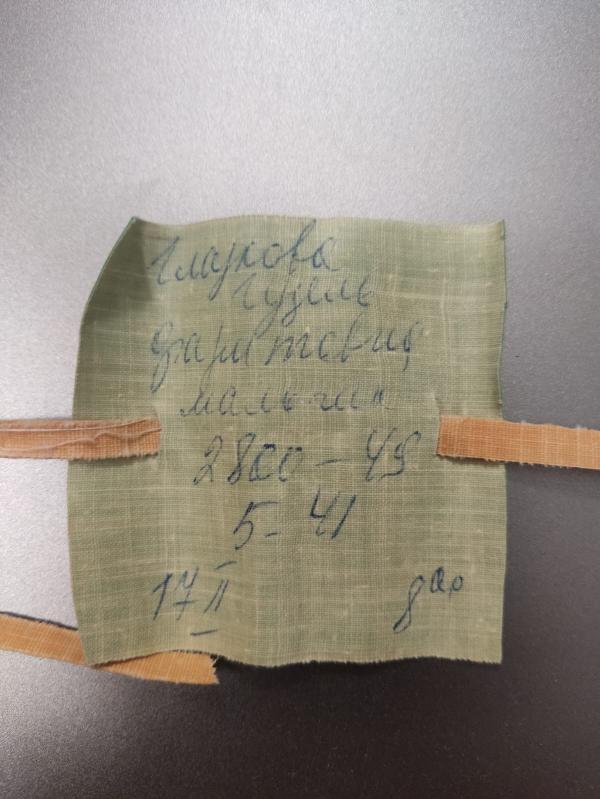 Глазкова
Гузель
Фаритовна
мальчик
2800 - 49
5 - 41
17 II 8 00